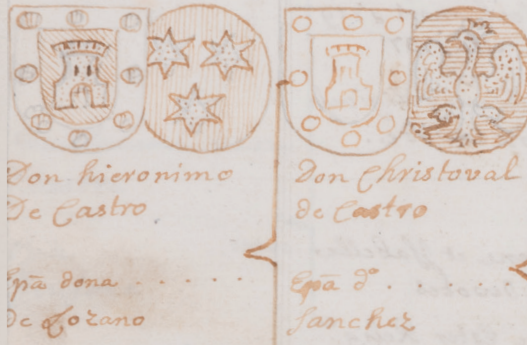 Don hieronimo
De Castro
Epã dona . . . . . .
De Lozano
Don Christoval
de Castro
Epã dº . . . . . .
Sanchez